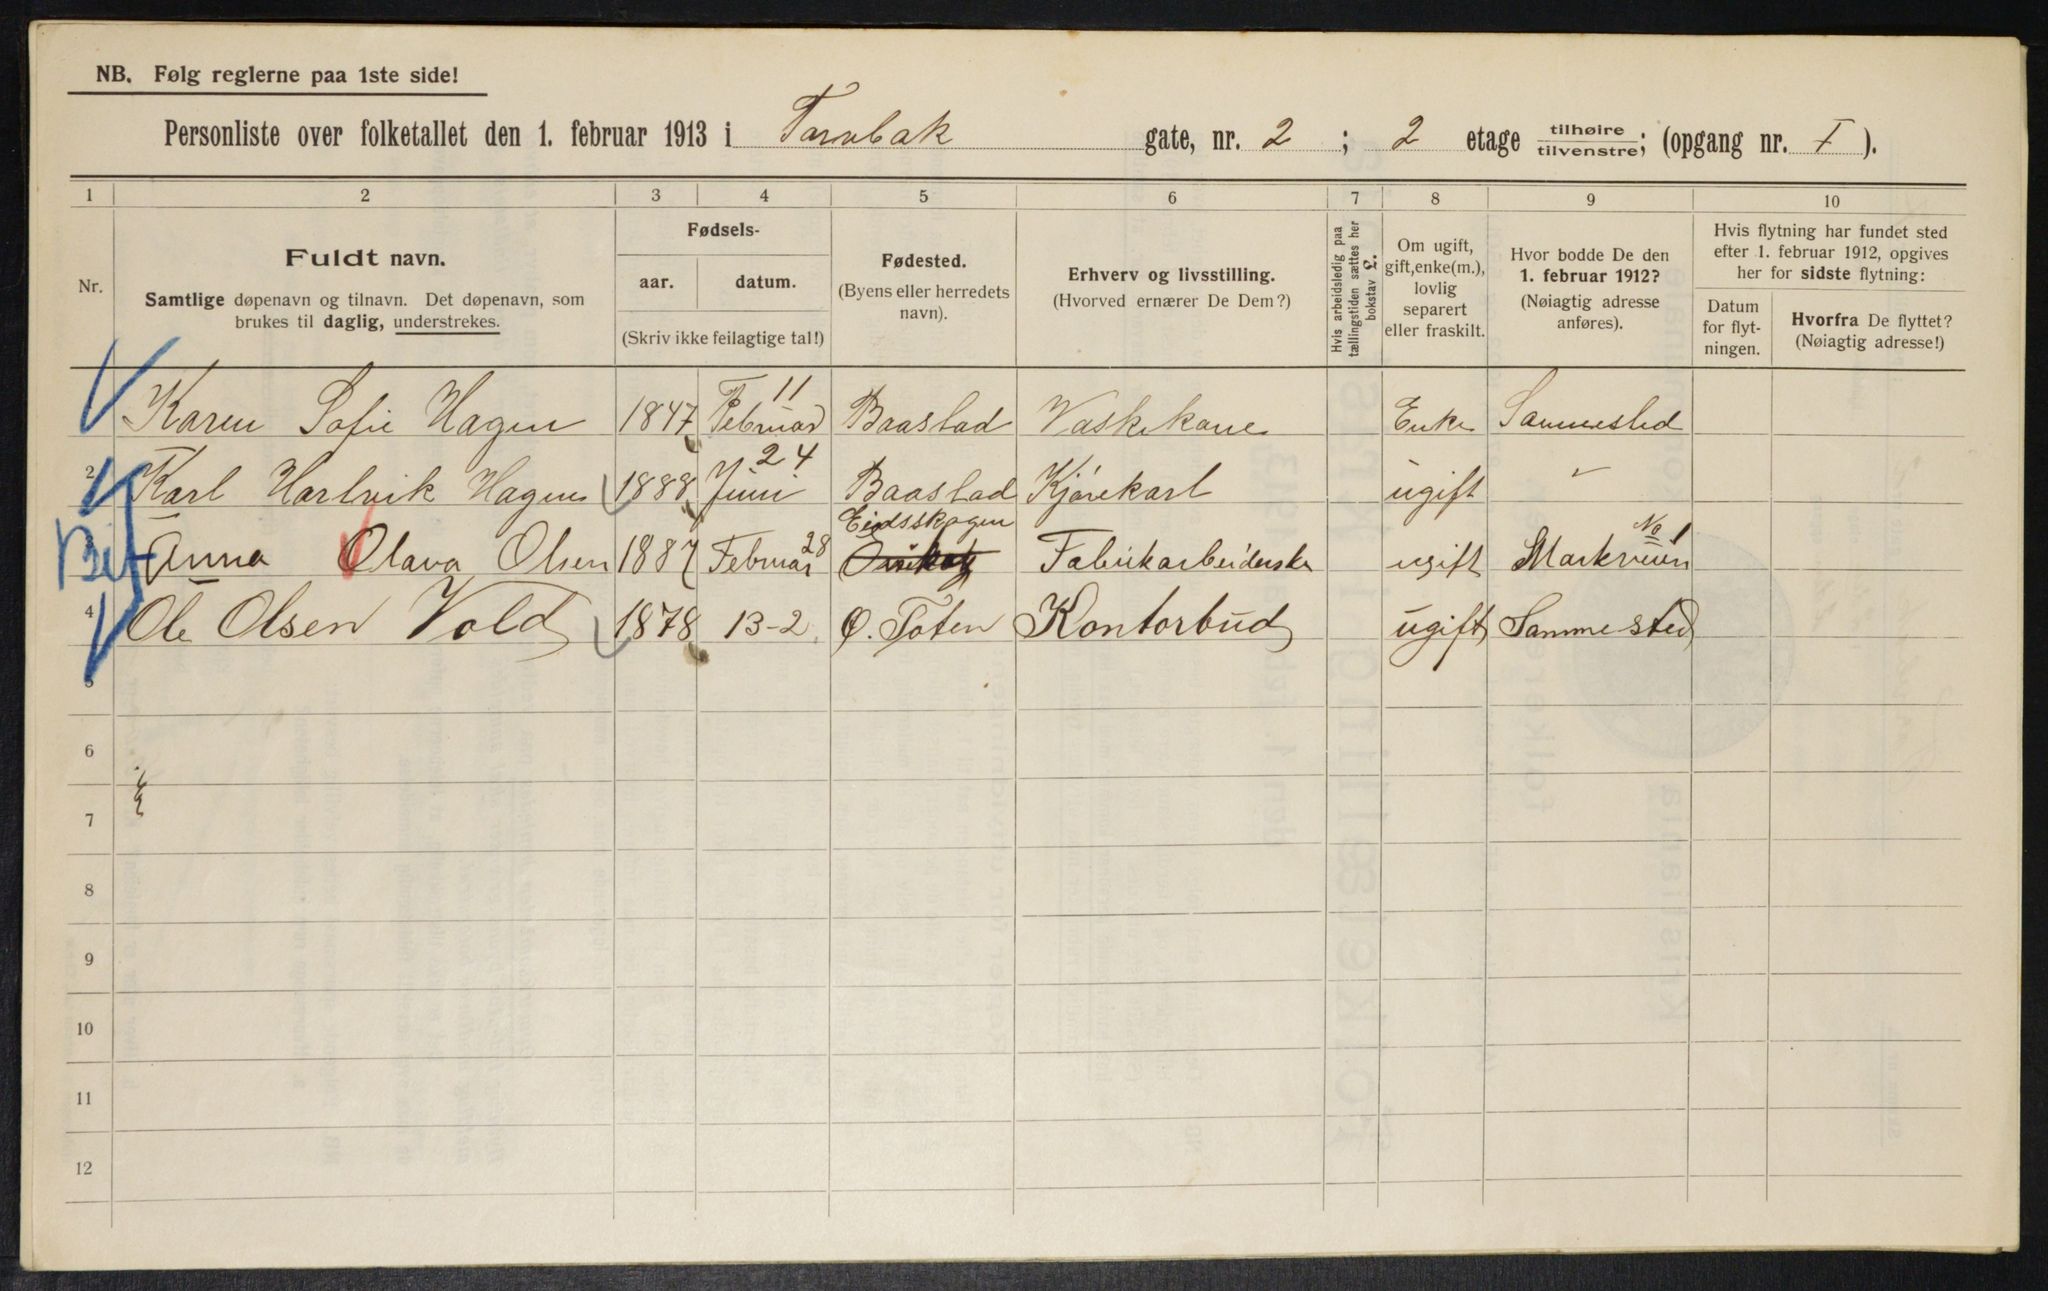 NB. Følg reglerne paa 1ste side!
Personliste over folketallet den 1. februar 1913 i Tornbak gate, nr. 2 ; 2 etage tilhøire/tilvenstre; (opgang nr. I ).
1 2 3 4 5 6 7 8 9 10
Nr.
Fuldt navn.
Samtlige døpenavn og tilnavn. Det døpenavn, som
brukes til daglig, understrekes.
Fødsels-
aar. datum.
(Skriv ikke feilagtige tal!)
Fødested.
(Byens eller herredets
navn).
Erhverv og livsstilling.
(Hvorved ernærer De Dem?)
Hvis arbeidsledig paa
tællingstiden sættes her
bokstav L.
Om ugift,
gift, enke(m.),
lovlig
separert
eller fraskilt.
Hvor bodde De den
1. februar 1912?
(Nøiagtig adresse
anføres).
Hvis flytning har fundet sted
efter 1. februar 1912, opgives
her for sidste flytning:
Datum
for flyt-
ningen.
Hvorfra De flyttet?
(Nøiagtig adresse!)
Karen Sofie Hagen 1847 Februar 11 Baastad Vaskekone Enke Sammested
2 Karl Hartvik Hagen 1888 Juni 24 Baastad Kjørekarl ugift "
3 Anna Olava Olsen 1887 Februar 28 Eidsskogen Fabrikarbeiderske ugift Markveien No 1
4 Ole Olsen Vold 1878 13-2 Ø. Toten Kontorbud ugift Sammested
5
6
7
8
9
10
11
12